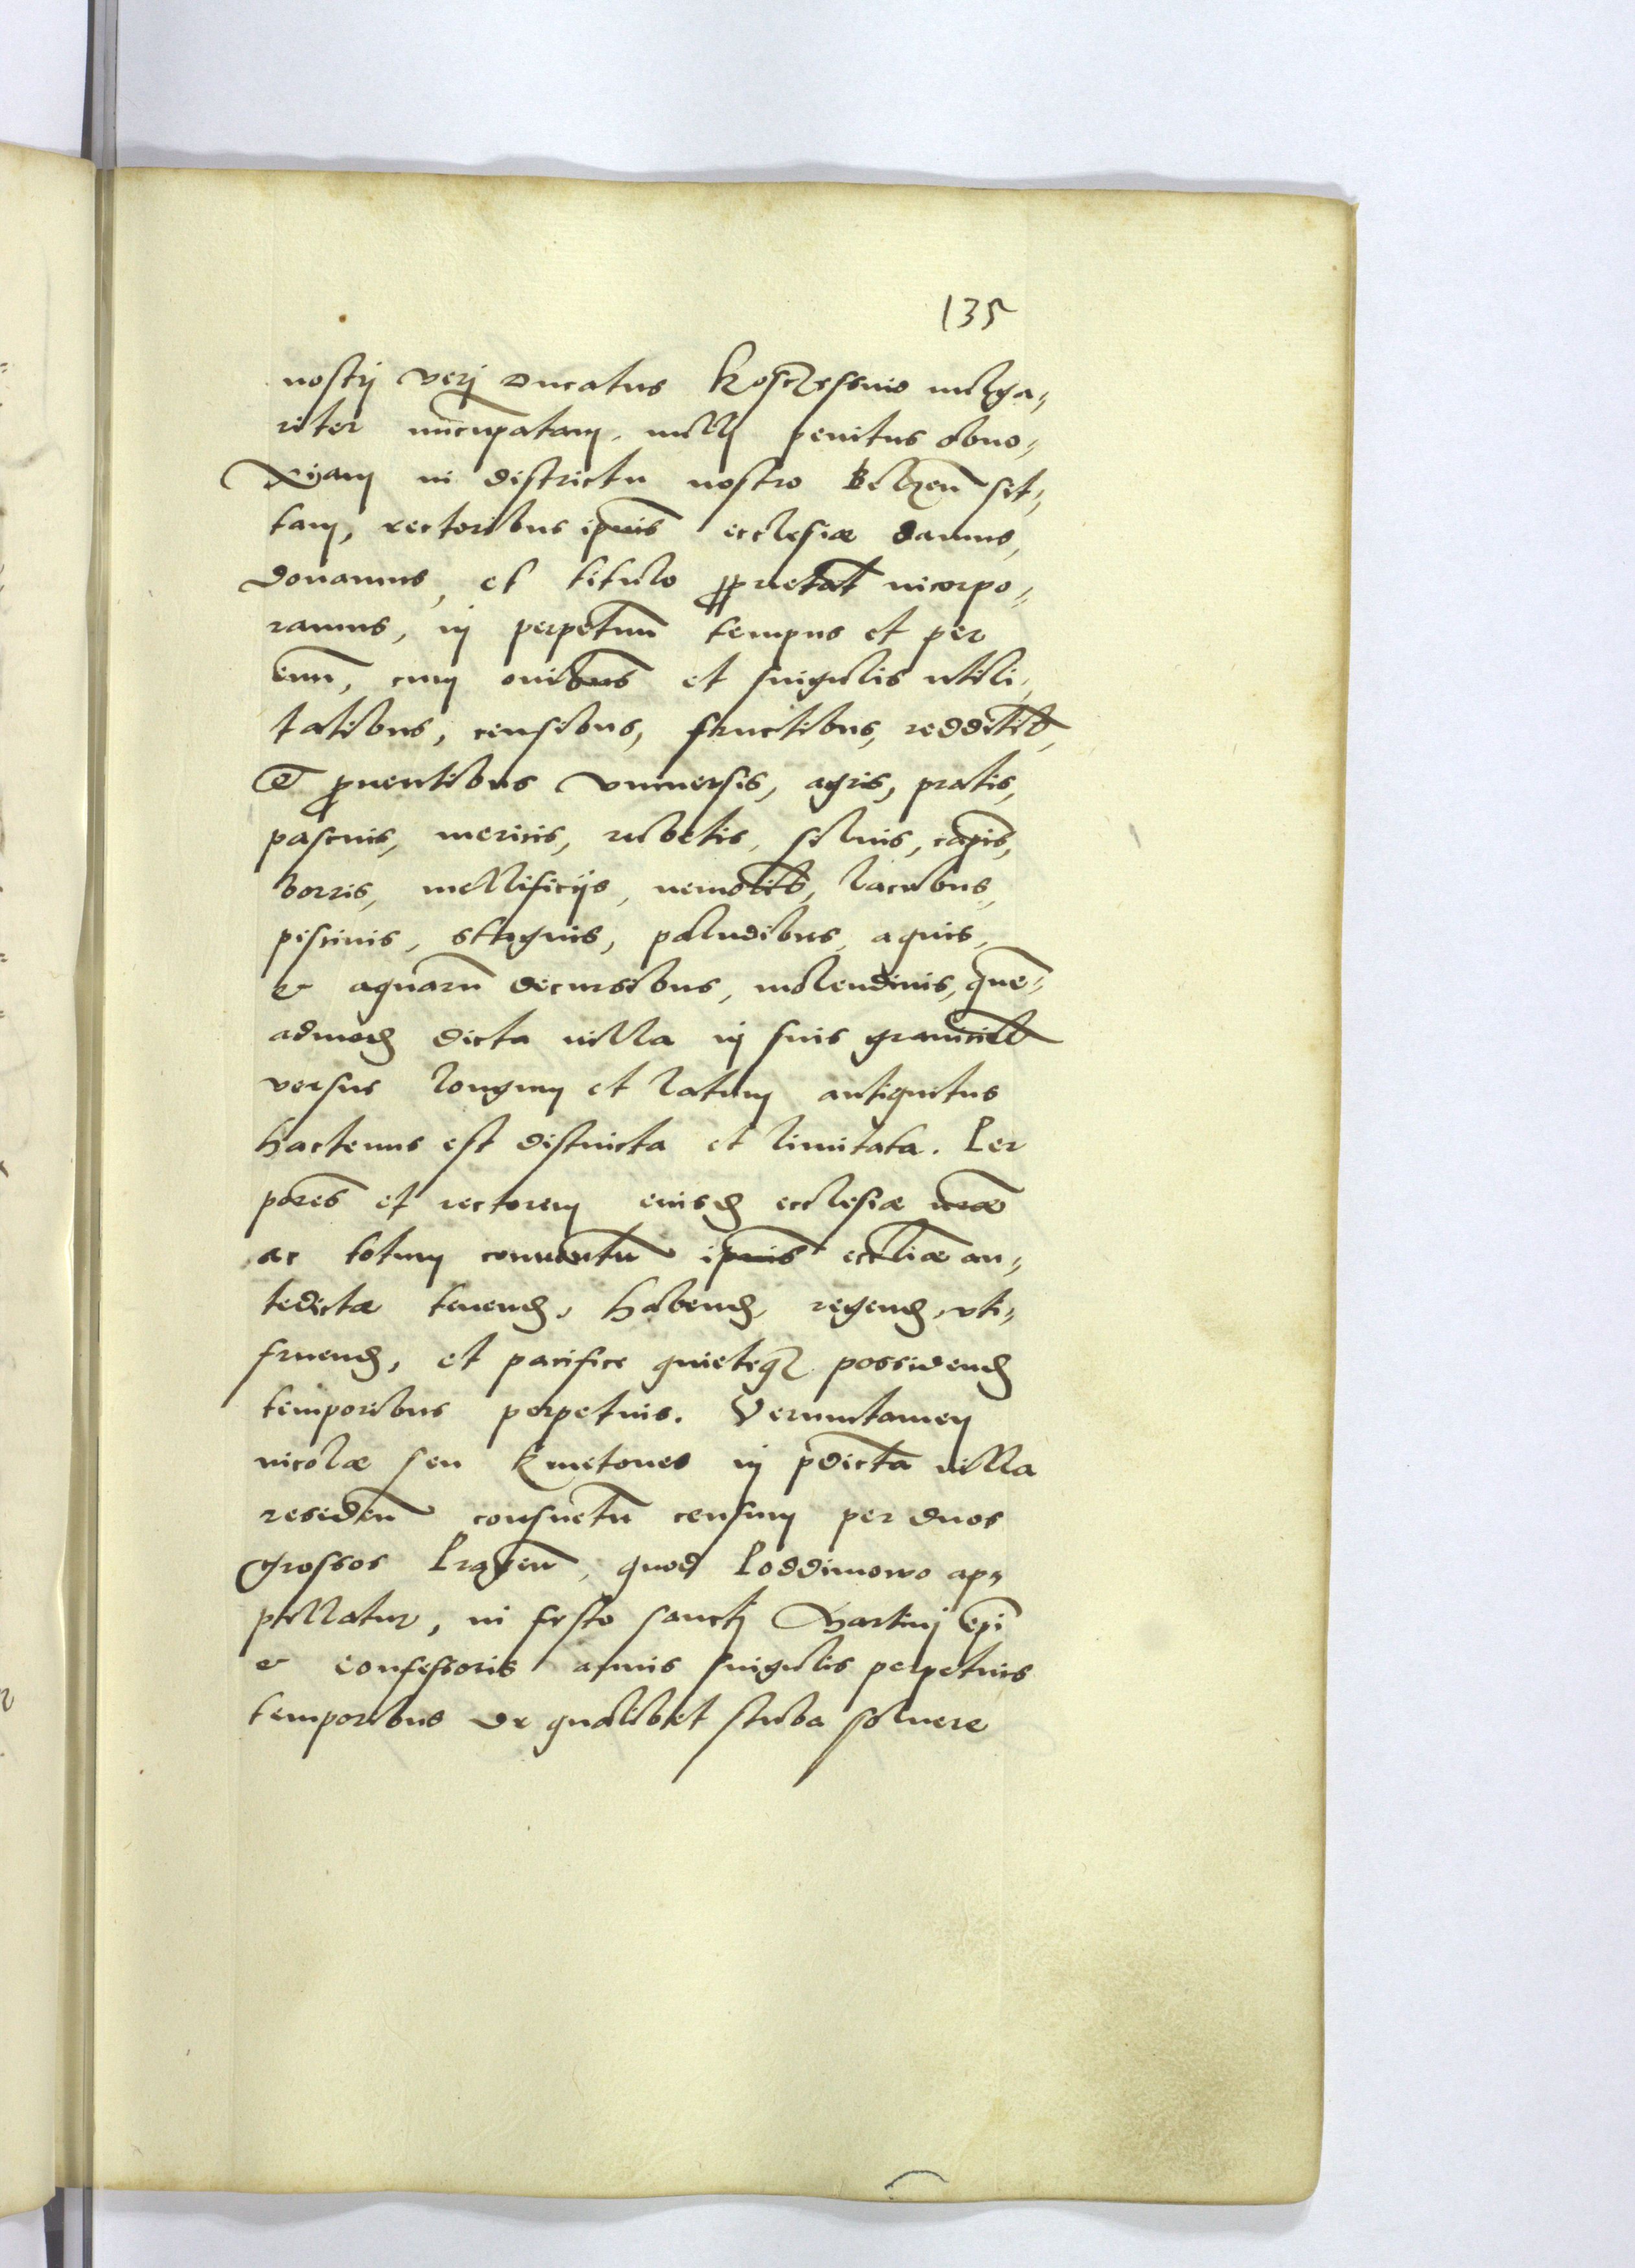 135
nostrj verj ducatus Kosczessino uulga„
riter nũcupatam, nullj penitus obno„
xiam in districtu nostro Belzeñ sit„
tam, rectoribus ipuis ecclesiæ damus,
donamus, et titulo ppruetat̃ incorpo„
ramus, in perpetuũ tempus et per
euũ, cum oñibus et singulis utili„
tatibus, censibus, fructibus, redditib,
Et prouentibus vniuersis, agris, pratis,
pascuis, mericis, rubetis, siluis, cap̃is,
borris, mellificijs, nemorib, lacubus,
piscinis, stagnis, paludibus, aquis,
& aquarũ decursibus, molendinis, quẽ„
admod dicta uilla in suis granicieb
versus longum et latum antiquitus
hactenus est distincta et limitata. Per
pores̃ et rectorem eiusd ecclesiæ nr̃æ
ac totum conuentũ ipuis eccliæ an„
tedictæ tenend, habend, regend, vti„
fruend, et pacifice quieteq possidend
temporibus perpetuis. Veruntamen
incolæ seu Kmetones in p̃dicta uilla
resideñ consuetũ censum per duos
grossos Prageñ, quod Poddimowo ap„
pellatur, in festo sanctj Martinj ep̃i
& confessoris annis singulis perpetuis
temporibus de qualibet stuba soluere